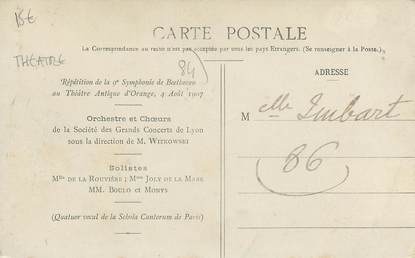 15€
THÉATRE
CARTE POSTALE
La Correspondance au recto n'est pas acceptée par tous les pays Etrangers. (Se renseigner à la Poste.)
84
Répétition de la 9e Symphonie de Beethoven
au Théâtre Antique d'Orange, 4 Août 1907
Orchestre et Chœurs
de la Société des Grands Concerts de Lyon
sous la direction de M. Witkowski
Solistes
Mlle de la Rouvière ; Mme Joly de la Mare
MM. Boulo et Monys
(Quatuor vocal de la Schola Cantorum de Paris)
ADRESSE
Melle Imbart
86